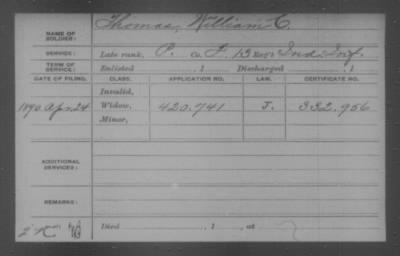 Thomas, William C.
NAME OF SOLDIER:
SERVICE: Late rank, P. Co. F, 13 Reg't Ind. Inf.
TERM OF SERVICE: Enlisted , 1 Discharged , 1
DATE OF FILING. CLASS. APPLICATION NO. LAW. CERTIFICATE NO.
Invalid,
1890 Apr. 24 Widow, 420.741 J. 332.956
Minor,
ADDITIONAL SERVICES:
REMARKS:
Died , 1 , at